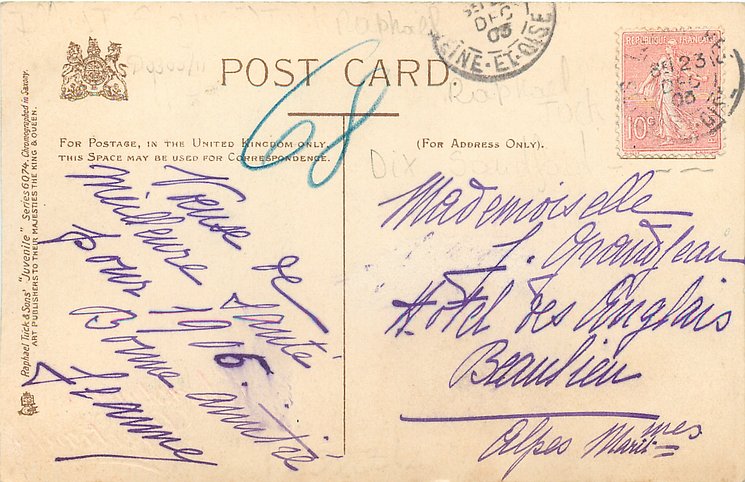 POST CARD
FOR POSTAGE, IN THE UNITED KINGDOM ONLY,
THIS SPACE MAY BE USED FOR CORRESPONDENCE.
(FOR ADDRESS ONLY).
68
Dix
de
Meilleure santé
pour 1906
Bonne amitié
Jeanne
Mademoiselle
J. Grandjean
Hôtel des Anglais
Beaulieu
Alpes Maritmes
SEINE-ET-OISE
DEC
05
23
DEC
05
10c
Raphael Tuck & Sons' "Juvenile" Series 6074. Chromographed in Saxony.
ART PUBLISHERS TO THEIR MAJESTIES THE KING & QUEEN.